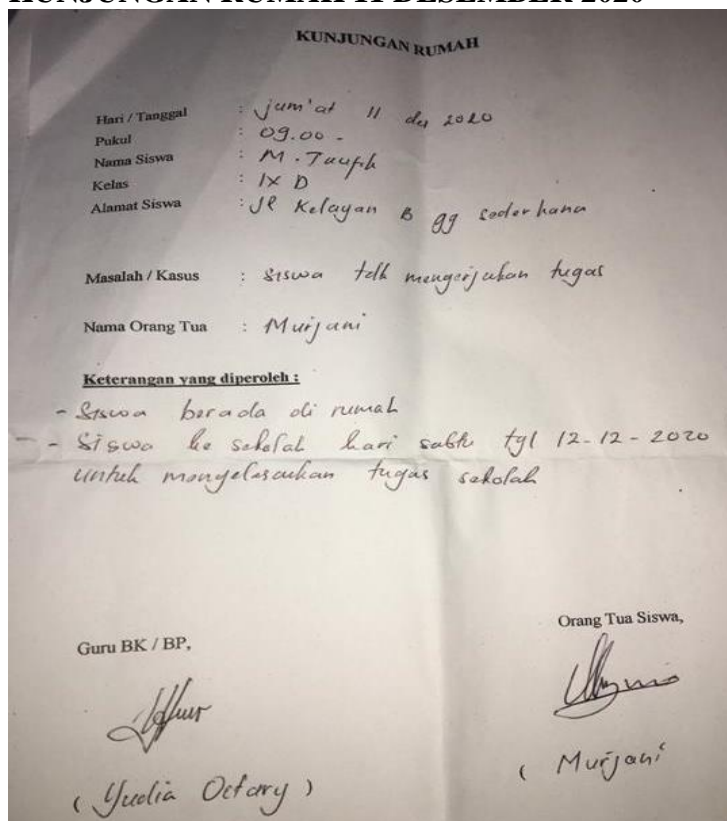 KUNJUNGAN RUMAH 11 DESEMBER 2020
KUNJUNGAN RUMAH
Hari / Tanggal : Jum'at 11 des 2020
Pukul : 09.00 -
Nama Siswa : M. Taufik
Kelas : IX D
Alamat Siswa : Jl Kelayan B gg sederhana
Masalah / Kasus : Siswa tdk mengerjakan tugas
Nama Orang Tua : Murjani
Keterangan yang diperoleh :
- Siswa berada di rumah
- Siswa ke sekolah hari sabtu tgl 12-12-2020
untuk menyelesaikan tugas sekolah
Orang Tua Siswa,
Guru BK / BP,
( Murjani
( Yudia Octary )